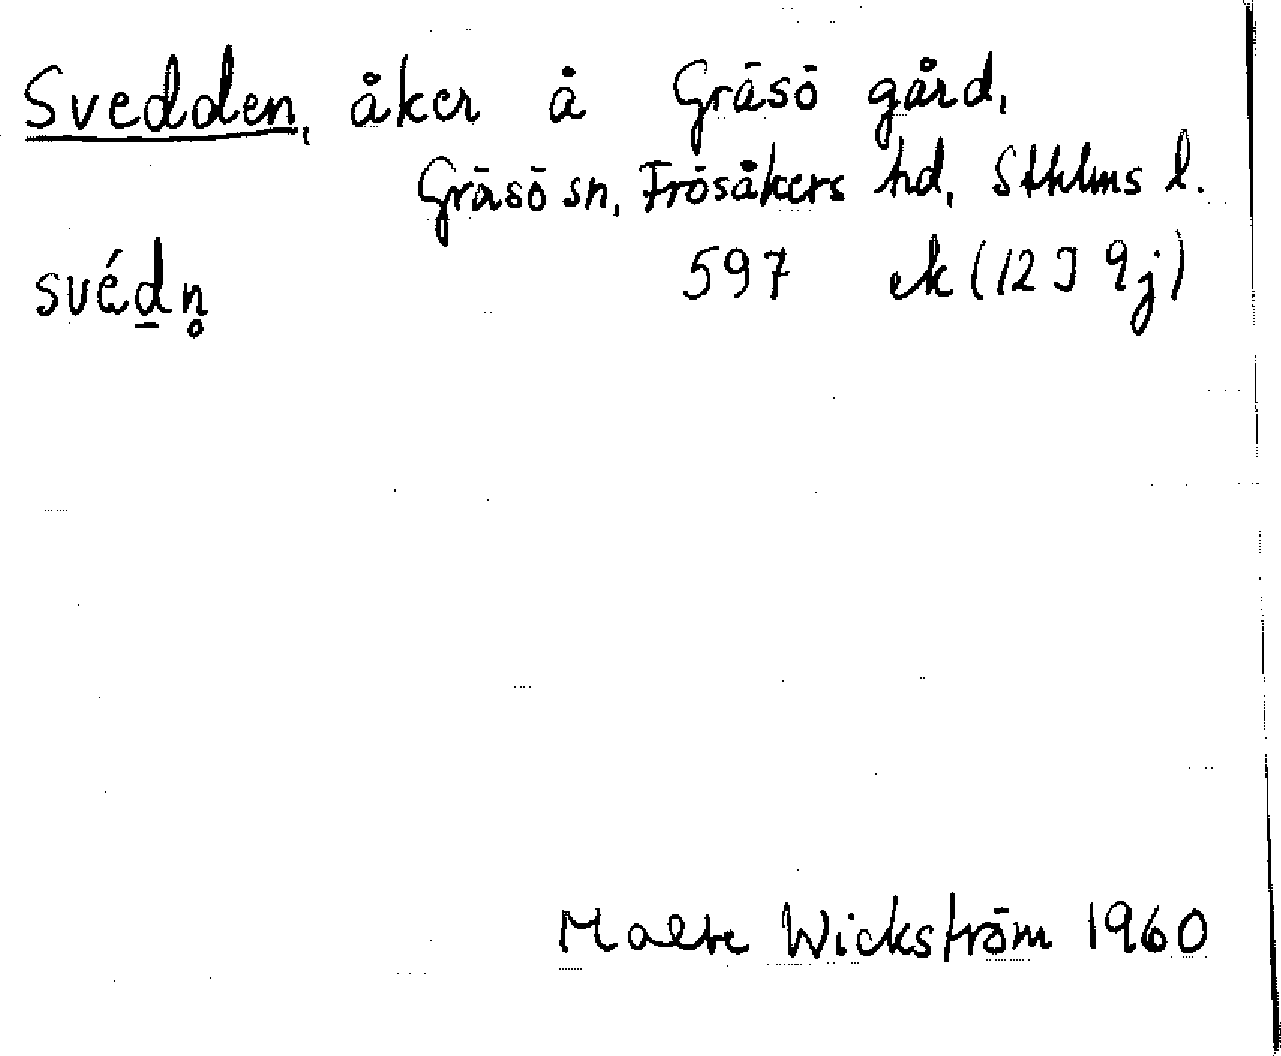 Svedden, åker å Gräsö gård,
Gräsö sn, Frösåkers hd, Sthlms l.
svéd̲n̥ 597 ek (12 J 9j)
Malte Wickström 1960